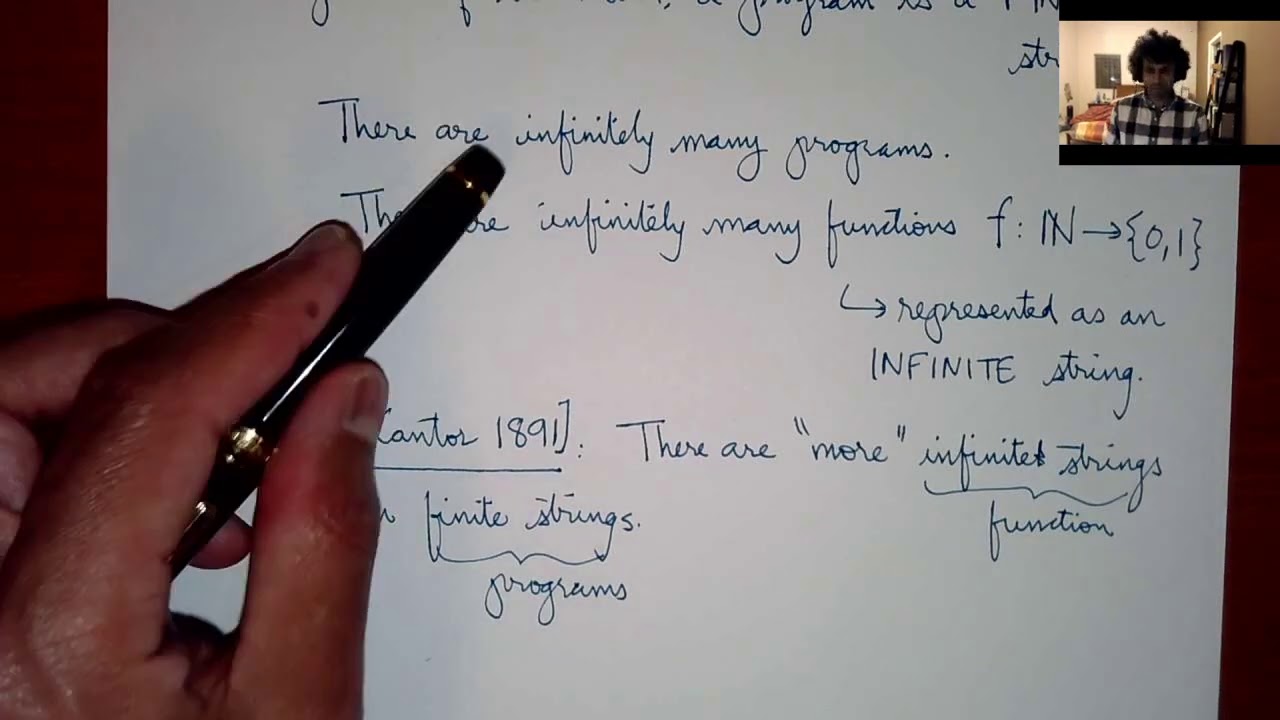 a program is a FIN
str
There are infinitely many programs.
are infinitely many functions f: ℕ → {0,1}
↳ represented as an
INFINITE string.
Cantor 1891]: There are "more" infinite strings
finite strings.
function
programs